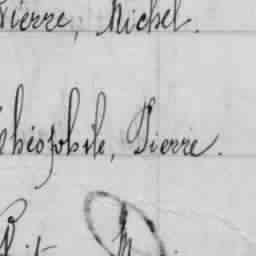 Pierre, Michel.
Théophile, Pierre.